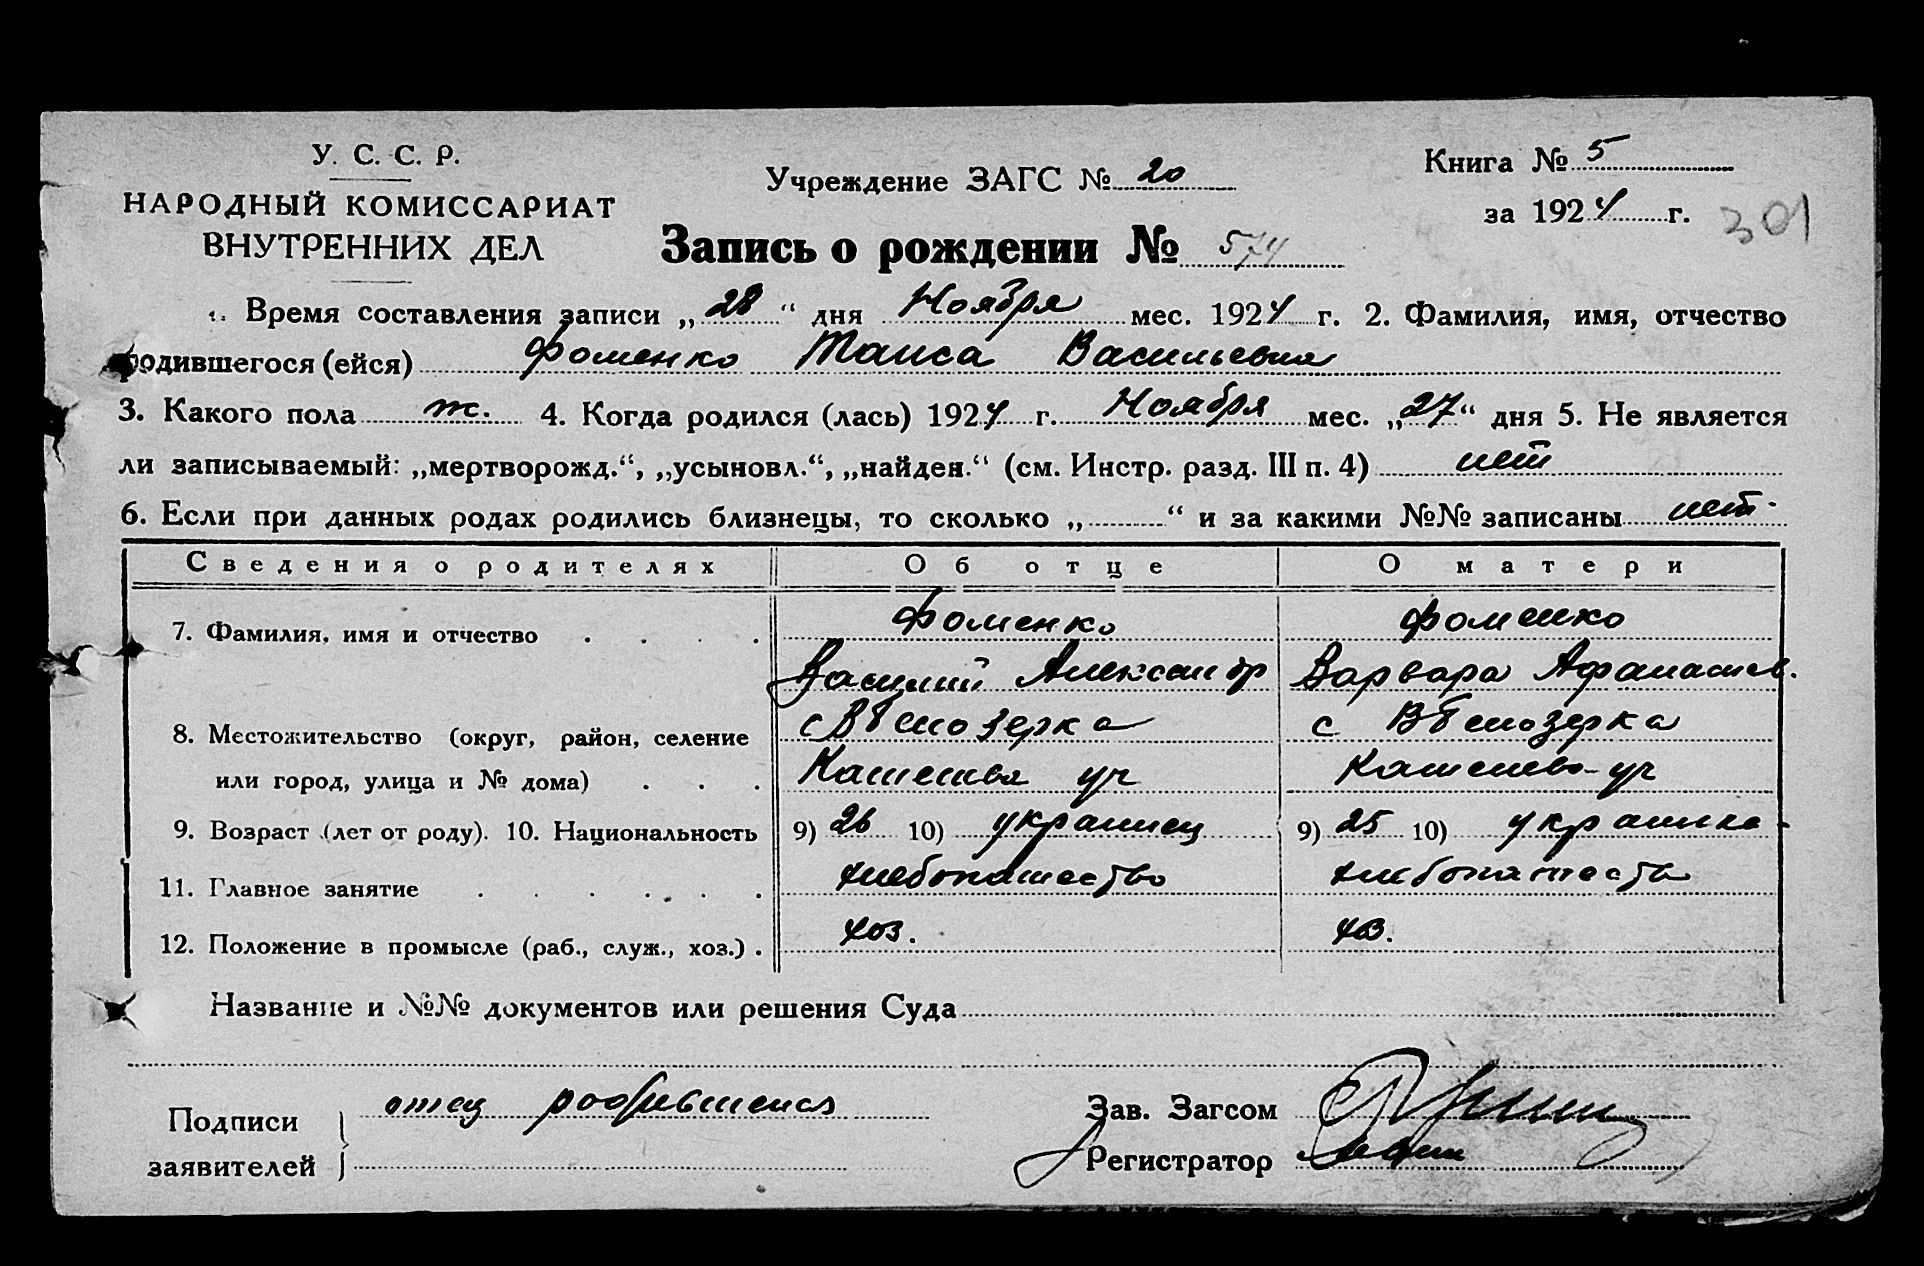 У. С. С. Р.
НАРОДНЫЙ КОМИССАРИАТ
ВНУТРЕННИХ ДЕЛ
Учреждение ЗАГС № 20
Книга № 5
за 1924 г. 301
Запись о рождении № 574
1. Время составления записи „28“ дня Ноября мес. 1924 г. 2. Фамилия, имя, отчество
родившегося (ейся) Фоменко Таиса Васильевна
3. Какого пола ж. 4. Когда родился (лась) 1924 г. Ноября мес. „27“ дня 5. Не является
ли записываемый: „мертворожд.“, „усыновл.“, „найден.“ (см. Инстр. разд. III п. 4) нет
6. Если при данных родах родились близнецы, то сколько „ “ и за какими №№ записаны нет
Сведения о родителях Об отце О матери
7. Фамилия, имя и отчество Фоменко Фоменко
Василий Александр Варвара Афанасьев.
8. Местожительство (округ, район, селение с ВБелозерка с ВБелозерка
или город, улица и № дома) уч уч
9. Возраст (лет от роду). 10. Национальность 9) 26 10) украинец 9) 25 10) украинка
11. Главное занятие хлебопашество хлебопашество
12. Положение в промысле (раб., служ., хоз.) хоз. хоз.
Название и №№ документов или решения Суда
Подписи заявителей отец родившейся
Зав. Загсом
Регистратор